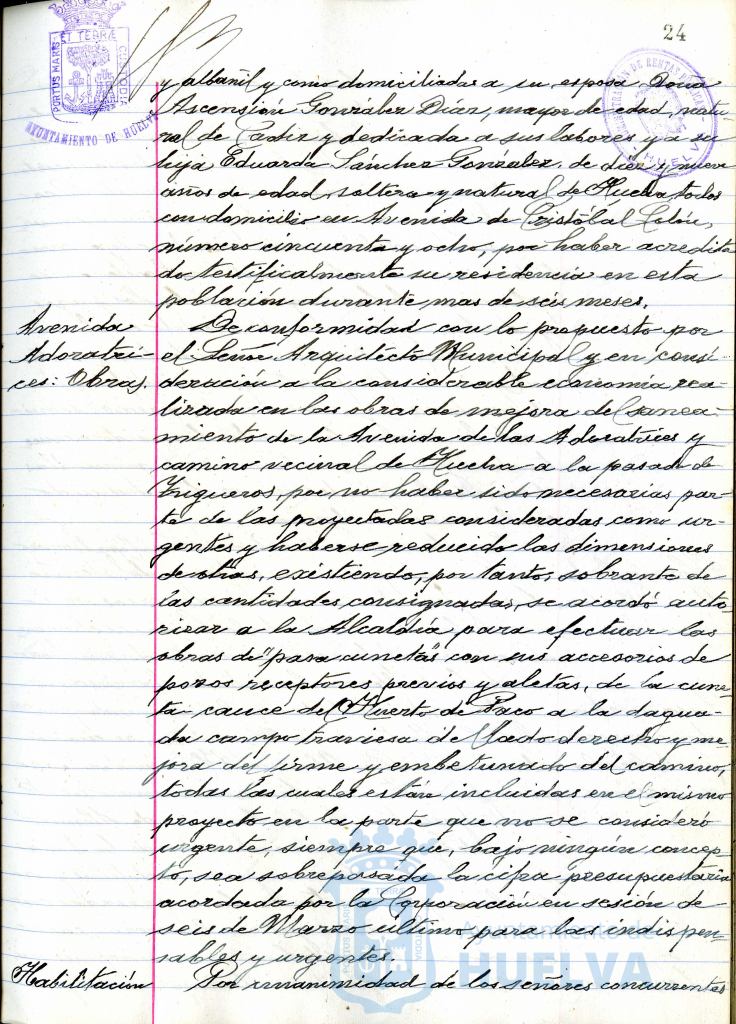 24
PORTUS MARIS ET TERRÆ CUSTODIA
AYUNTAMIENTO DE HUELVA
HUELVA
y albañil y como domiciliadas a su esposa Doña
Ascensión González Díaz, mayor de edad, natu-
ral de Cadiz y dedicada a sus labores y a su
hija Eduarda Sánchez González, de diez y nueve
años de edad, soltera y natural de Huelva, todos
con domicilio en Avenida de Cristóbal Colón,
número cincuenta y ocho, por haber acredita
do testificalmente su residencia en esta
población durante mas de seis meses.
Avenida
Adoratri-
ces: Obras.
De conformidad con lo propuesto por
el Señor Arquitecto Municipal y en consi-
deración a la considerable economía rea-
lizada en las obras de mejora del sanea-
miento de la Avenida de las Adoratrices y
camino vecinal de Huelva a la pasada de
Trigueros, por no haber sido necesarias par-
te de las proyectadas consideradas como ur-
gentes y haberse reducido las dimensiones
de otras, existiendo, por tanto, sobrante de
las cantidades consignadas, se acordó auto-
rizar a la Alcaldía para efectuar las
obras de "pasa cunetas" con sus accesorios de
pozos receptores previos y aletas, de la cune-
ta cauce del Huerto de Paco a la dagua-
da campo traviesa del lado derecho y me-
jora del firme y embetunado del camino,
todas las cuales están incluidas en el mismo
proyecto en la parte que no se consideró
urgente, siempre que, bajo ningún concep-
to, sea sobrepasada la cifra presupuestaria
acordada por la Corporación en sesión de
seis de Marzo último para las indispen-
sables y urgentes.
Habilitación
Por unanimidad de los señores concurrentes
Ayuntamiento de
HUELVA